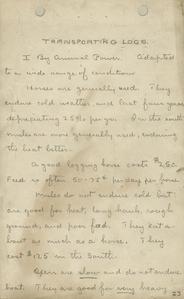 TRANSPORTING LOGS.
I By Animal Power. Adapted
to a wide range of conditions
Horses are generally used. They
endure cold weather, and last four years
depreciating 25% per yr. In the south
mules are more generally used, enduring
the heat better.
A good logging horse costs $250.
Feed is often 50-75¢ per day per horse
Mules do not endure cold but
are good for heat, long hauls, rough
ground, and poor feed. They eat a-
bout as much as a horse. They
cost $125 in the South.
Oxen are slow and do not endure
heat. They are good for very heavy
23